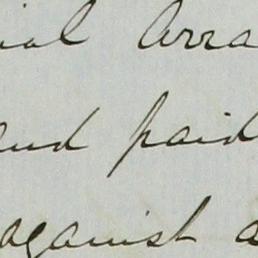 ial Arra
and paid
against a